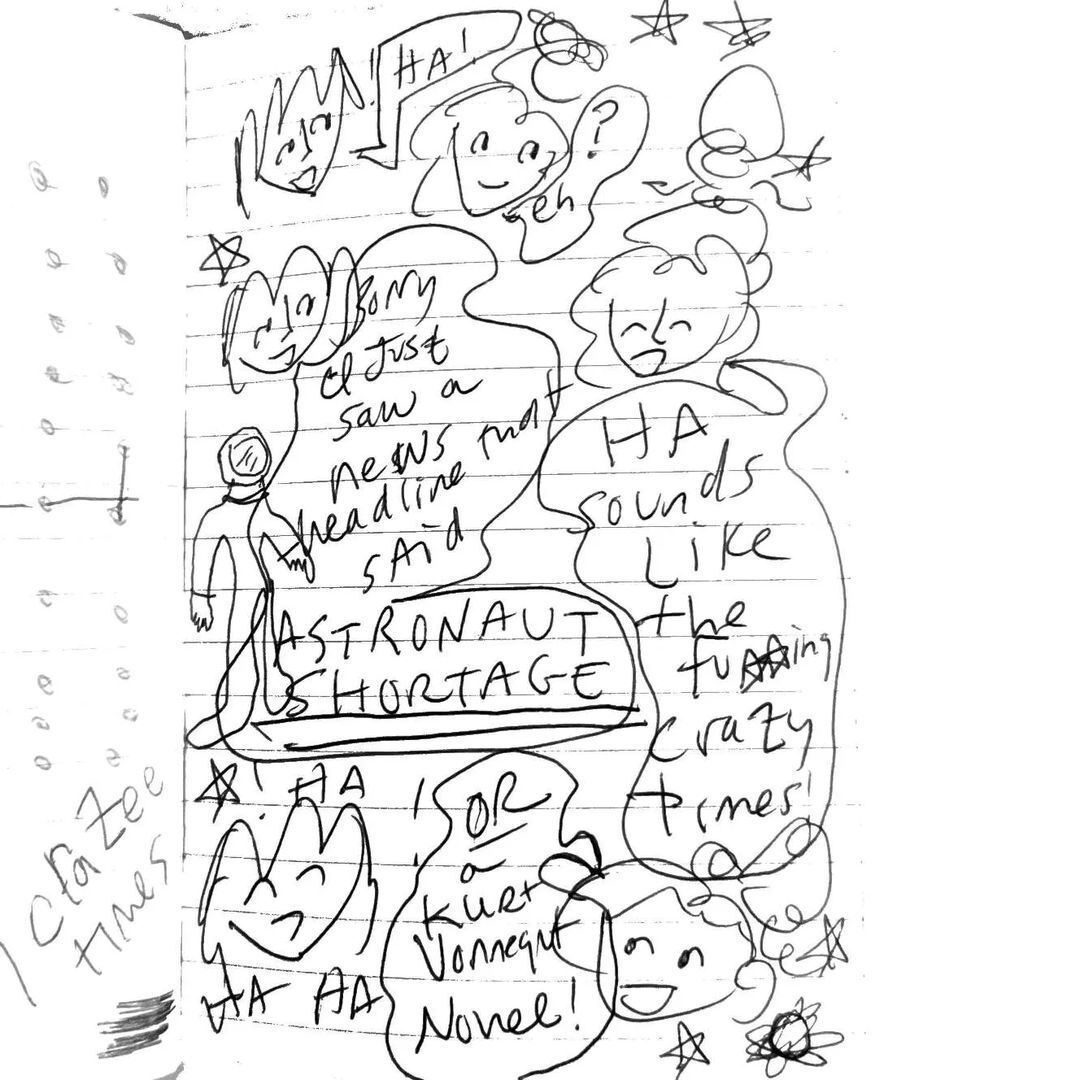 HA!
eh
?
Sorry
I just
saw a
news
headline that
said
ASTRONAUT
SHORTAGE
HA
sounds
Like
the
fu☆☆ing
crazy
times!
! HA !
HA HA
OR
a
Kurt
Vonnegut
Novel!
craZee
times